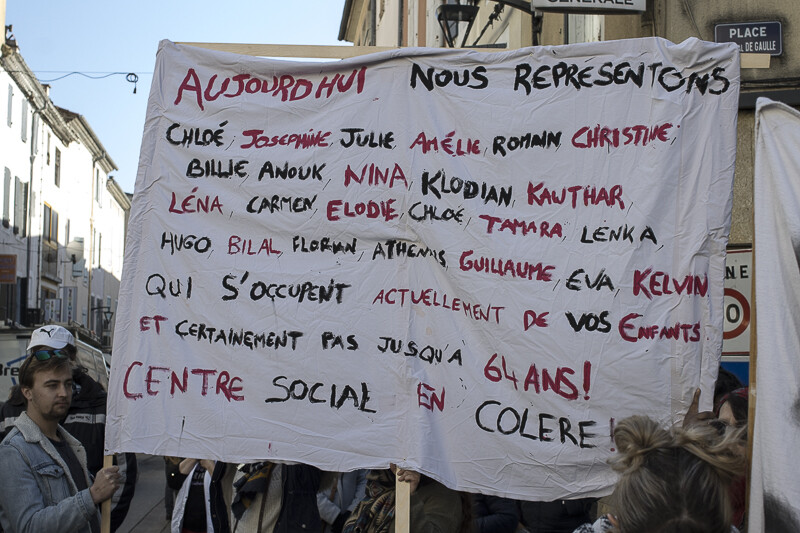 GÉNÉRALE
PLACE
DE GAULLE
AUJOURD'HUI NOUS REPRÉSENTONS
CHLOÉ, JOSEPHINE, JULIE, AMÉLIE, ROMAIN, CHRISTINE,
BILLIE, ANOUK, NINA, KLODIAN, KAWTHAR,
LÉNA, CARMEN, ELODIE, CHLOÉ, TAMARA, LENKA,
HUGO, BILAL, FLORIAN, ATHENAIS, GUILLAUME, EVA, KELVIN
QUI S'OCCUPENT ACTUELLEMENT DE VOS ENFANTS
ET CERTAINEMENT PAS JUSQU'A 64 ANS!
CENTRE SOCIAL EN COLERE!